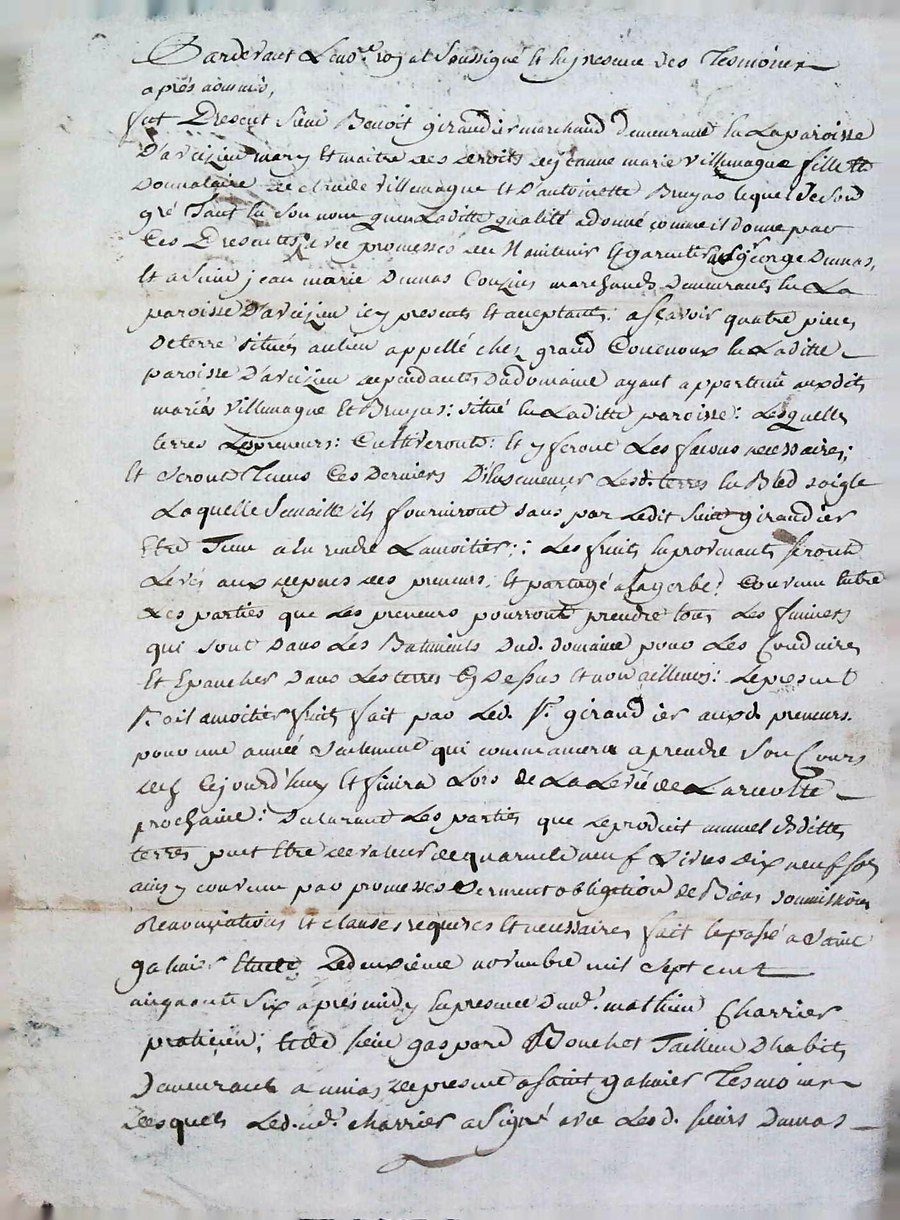 Pardevant Le no.re royal Soussigné et En presence des Tesmoins
après nommés,
fut Present Sieur Benoit girandier marchand demeurant En La paroisse
D'aveizieu mary Et maitre des droits de jeanne marie Villemagne fille Et
Donnataire de claude Villemagne Et D'antoinette Bruyas lequel De son
gré Tant En Son nom qu'en Laditte qualité a donné comme il donne par
Ces Presentes avec promesses de Maintenir Et garentir a Sr george Dumas,
Et a Sieur jean marie Dumas Cousins marchands Demeurants En La
paroisse D'aveizieu icy presents Et acceptants: asçavoir quatre pieces
De terre situées au lieu appellé chez grand En Laditte
paroisse D'aveizieu dependantes Du domaine ayant appartenu auxdits
mariés Villemagne Et Bruyas: situé En Laditte paroisse: Lesquelles
terres Les preneurs: Cultiveront: Et y feront Les façons necessaires;
Et seront Tenus Ces Derniers D'Ensemencer Lesd. terres En Bled seigle
Laquelle Semaille ils fourniront sans par Ledit Sieur girandier
Etre Tenu a En rendre La moitier; : Les fruits En provenants seront
Levés aux depens des preneurs, Et partagé a La gerbe: Convenu Entre
Les parties que Les preneurs pourront prendre tous Les fumiers
qui sont Dans Les Batiments Dud. domaine pour Les Conduire
Et Epancher Dans Les terres Cy Dessus Et non ailleurs: Le present
a moitier fruits fait par Led. Sr. girandier auxd. preneurs.
pour une année seulement qui commancera a prendre Son Cours
dez Cejourd'huy Et finira Lors de La Levée de La recolte
prochaine: Declarant Les parties que Le produit annuel desdittes
terres peut Etre de valeur de quarante neuf Livres dix neuf sols
ainsy convenu par promesses serment obligation de Biens soumissions
Renonciations Et clauses requises Et necessaires fait Et passé a Saint
galmier Etude, Le deuxieme novembre mil sept cent
cinquante six après midy En presence De me. mathieu Charrier
praticien; Et de sieur gaspard Bouchet Tailleur D'habits
Demeurant a de present a Saint galmier Tesmoins
Lesquels Led. me. charrier a Signé avec Lesd. sieurs Dumas